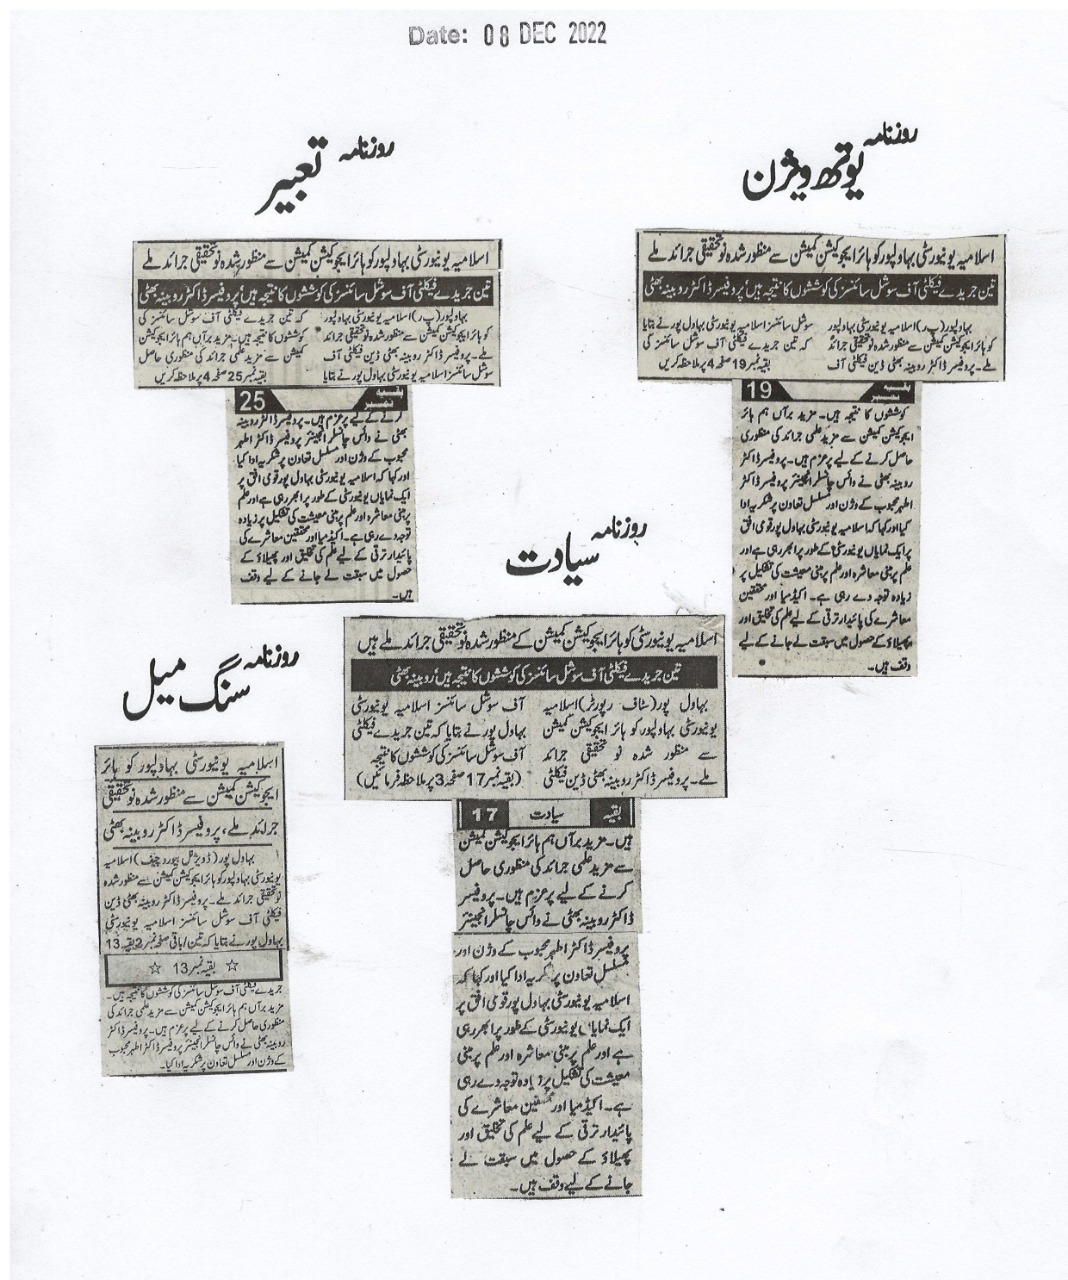 Date: 08 DEC 2022
روزنامہ یوتھ ویژن
اسلامیہ یونیورسٹی بہاولپور کو ہائر ایجوکیشن کمیشن سے منظور شدہ نو تحقیقی جرائد ملے
تین جریدے فیکلٹی آف سوشل سائنسز کی کوششوں کا نتیجہ ہیں، پروفیسر ڈاکٹر روبینہ بھٹی
بہاولپور (پ ر) اسلامیہ یونیورسٹی بہاولپور
کو ہائر ایجوکیشن کمیشن سے منظور شدہ نو تحقیقی جرائد
ملے۔ پروفیسر ڈاکٹر روبینہ بھٹی ڈین فیکلٹی آف
سوشل سائنسز اسلامیہ یونیورسٹی بہاول پور نے بتایا
کہ تین جریدے فیکلٹی آف سوشل سائنسز کی
بقیہ نمبر 19 صفحہ 4 پر ملاحظہ کریں
بقیہ نمبر 19
کوششوں کا نتیجہ ہیں۔ مزید برآں ہم ہائر
ایجوکیشن کمیشن سے مزید علمی جرائد کی منظوری
حاصل کرنے کے لیے پرعزم ہیں۔ پروفیسر ڈاکٹر
روبینہ بھٹی نے وائس چانسلر انجینئر پروفیسر ڈاکٹر
اطہر محبوب کے وژن اور مسلسل تعاون پر شکریہ ادا
کیا اور کہا کہ اسلامیہ یونیورسٹی بہاول پور قومی افق
پر ایک نمایاں یونیورسٹی کے طور پر ابھر رہی ہے اور
علم پر مبنی معاشرہ اور علم پر مبنی معیشت کی تشکیل پر
زیادہ توجہ دے رہی ہے۔ اکیڈمیا اور محققین
معاشرے کی پائیدار ترقی کے لیے علم کی تخلیق اور
پھیلاؤ کے حصول میں سبقت لے جانے کے لیے
وقف ہیں۔
روزنامہ تعبیر
اسلامیہ یونیورسٹی بہاولپور کو ہائر ایجوکیشن کمیشن سے منظور شدہ نو تحقیقی جرائد ملے
تین جریدے فیکلٹی آف سوشل سائنسز کی کوششوں کا نتیجہ ہیں، پروفیسر ڈاکٹر روبینہ بھٹی
بہاولپور (پ ر) اسلامیہ یونیورسٹی بہاولپور
کو ہائر ایجوکیشن کمیشن سے منظور شدہ نو تحقیقی جرائد
ملے۔ پروفیسر ڈاکٹر روبینہ بھٹی ڈین فیکلٹی آف
سوشل سائنسز اسلامیہ یونیورسٹی بہاول پور نے بتایا
کہ تین جریدے فیکلٹی آف سوشل سائنسز کی
کوششوں کا نتیجہ ہیں۔ مزید برآں ہم ہائر ایجوکیشن
کمیشن سے مزید علمی جرائد کی منظوری حاصل
بقیہ نمبر 25 صفحہ 4 پر ملاحظہ کریں
بقیہ نمبر 25
کرنے کے لیے پرعزم ہیں۔ پروفیسر ڈاکٹر روبینہ
بھٹی نے وائس چانسلر انجینئر پروفیسر ڈاکٹر اطہر
محبوب کے وژن اور مسلسل تعاون پر شکریہ ادا کیا
اور کہا کہ اسلامیہ یونیورسٹی بہاول پور قومی افق پر
ایک نمایاں یونیورسٹی کے طور پر ابھر رہی ہے اور علم
پر مبنی معاشرہ اور علم پر مبنی معیشت کی تشکیل پر زیادہ
توجہ دے رہی ہے۔ اکیڈمیا اور محققین معاشرے کی
پائیدار ترقی کے لیے علم کی تخلیق اور پھیلاؤ کے
حصول میں سبقت لے جانے کے لیے وقف
ہیں۔
روزنامہ سیادت
اسلامیہ یونیورسٹی کو ہائر ایجوکیشن کمیشن کے منظور شدہ نو تحقیقی جرائد ملے ہیں
تین جریدے فیکلٹی آف سوشل سائنسز کی کوششوں کا نتیجہ ہیں، روبینہ بھٹی
بہاول پور (سٹاف رپورٹر) اسلامیہ
یونیورسٹی بہاولپور کو ہائر ایجوکیشن کمیشن
سے منظور شدہ نو تحقیقی جرائد
ملے۔ پروفیسر ڈاکٹر روبینہ بھٹی ڈین فیکلٹی
آف سوشل سائنسز اسلامیہ یونیورسٹی
بہاول پور نے بتایا کہ تین جریدے فیکلٹی
آف سوشل سائنسز کی کوششوں کا نتیجہ
(بقیہ نمبر 17 صفحہ 3 پر ملاحظہ فرمائیں)
بقیہ سیادت 17
ہیں۔ مزید برآں ہم ہائر ایجوکیشن کمیشن
سے مزید علمی جرائد کی منظوری حاصل
کرنے کے لیے پرعزم ہیں۔ پروفیسر
ڈاکٹر روبینہ بھٹی نے وائس چانسلر انجینئر
پروفیسر ڈاکٹر اطہر محبوب کے وژن اور
مسلسل تعاون پر شکریہ ادا کیا اور کہا کہ
اسلامیہ یونیورسٹی بہاول پور قومی افق پر
ایک نمایاں یونیورسٹی کے طور پر ابھر رہی
ہے اور علم پر مبنی معاشرہ اور علم پر مبنی
معیشت کی تشکیل پر زیادہ توجہ دے رہی
ہے۔ اکیڈمیا اور محققین معاشرے کی
پائیدار ترقی کے لیے علم کی تخلیق اور
پھیلاؤ کے حصول میں سبقت لے
جانے کے لیے وقف ہیں۔
روزنامہ سنگ میل
اسلامیہ یونیورسٹی بہاولپور کو ہائر
ایجوکیشن کمیشن سے منظور شدہ نو تحقیقی
جرائد ملے، پروفیسر ڈاکٹر روبینہ بھٹی
بہاول پور (ڈویژنل بیورو چیف) اسلامیہ
یونیورسٹی بہاولپور کو ہائر ایجوکیشن کمیشن سے منظور شدہ
نو تحقیقی جرائد ملے۔ پروفیسر ڈاکٹر روبینہ بھٹی ڈین
فیکلٹی آف سوشل سائنسز اسلامیہ یونیورسٹی
بہاول پور نے بتایا کہ تین / باقی صفحہ نمبر 2 بقیہ 13
☆ بقیہ نمبر 13 ☆
جریدے فیکلٹی آف سوشل سائنسز کی کوششوں کا نتیجہ ہیں۔
مزید برآں ہم ہائر ایجوکیشن کمیشن سے مزید علمی جرائد کی
منظوری حاصل کرنے کے لیے پرعزم ہیں۔ پروفیسر ڈاکٹر
روبینہ بھٹی نے وائس چانسلر انجینئر پروفیسر ڈاکٹر اطہر محبوب
کے وژن اور مسلسل تعاون پر شکریہ ادا کیا۔